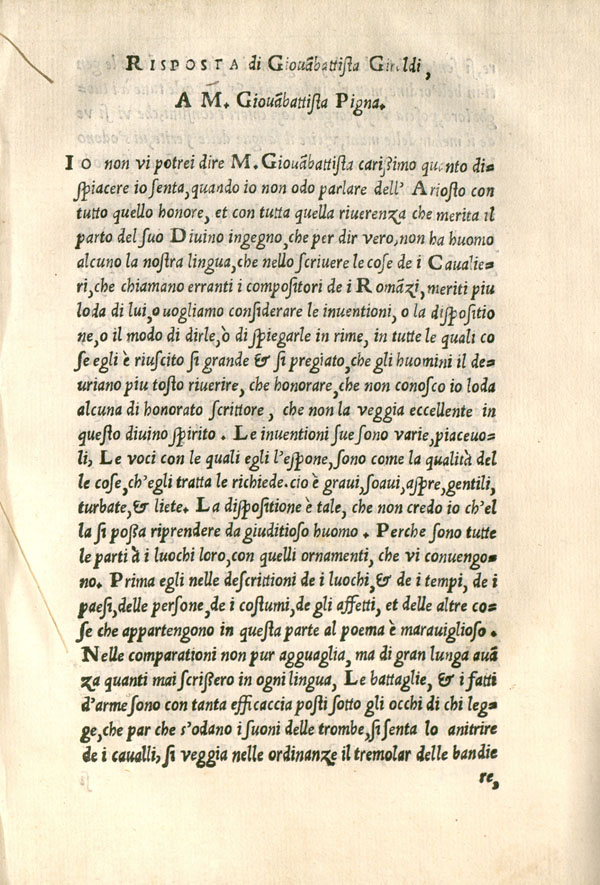 RISPOSTA di Giouãbattista Giraldi,
A M. Giouãbattista Pigna.
IO non vi potrei dire M. Giouãbattista carißimo quanto di=
spiacere io senta, quando io non odo parlare dell' Ariosto con
tutto quello honore, et con tutta quella riuerenza che merita il
parto del suo Diuino ingegno, che per dir vero, non ha huomo
alcuno la nostra lingua, che nello scriuere le cose de i Caualie=
ri, che chiamano erranti i compositori de i Romãzi, meriti piu
loda di lui, o uogliamo considerare le inuentioni, o la dispositio
ne, o il modo di dirle, ò di spiegarle in rime, in tutte le quali co
se egli è riuscito si grande & si pregiato, che gli huomini il de=
uriano piu tosto riuerire, che honorare, che non conosco io loda
alcuna di honorato scrittore, che non la veggia eccellente in
questo diuino spirito. Le inuentioni sue sono varie, piaceuo=
li, Le voci con le quali egli l'espone, sono come la qualità del
le cose, ch'egli tratta le richiede. cio è graui, soaui, aspre, gentili,
turbate, & liete. La dispositione è tale, che non credo io ch'el
la si poßa riprendere da giuditioso huomo. Perche sono tutte
le parti à i luochi loro, con quelli ornamenti, che vi conuengo=
no. Prima egli nelle descrittioni de i luochi, & de i tempi, de i
paesi, delle persone, de i costumi, de gli affetti, et delle altre co=
se che appartengono in questa parte al poema è marauiglioso.
Nelle comparationi non pur agguaglia, ma di gran lunga auã
za quanti mai scrißero in ogni lingua, Le battaglie, & i fatti
d'arme sono con tanta efficaccia posti sotto gli occhi di chi leg=
ge, che par che s'odano i suoni delle trombe, si senta lo anitrire
de i caualli, si veggia nelle ordinanze il tremolar delle bandie
re,